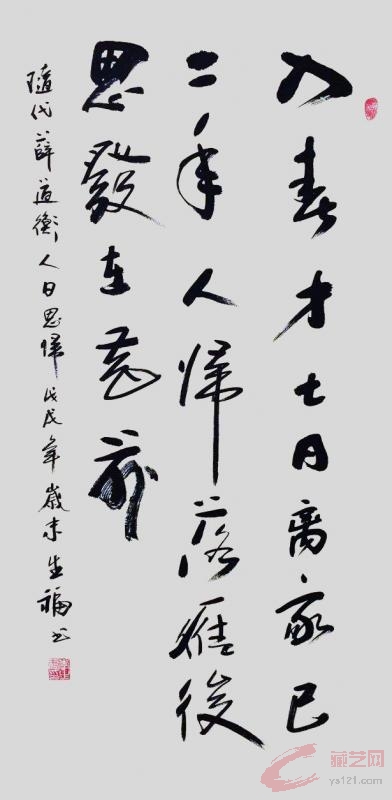 入春才七日离家已
二年人歸落雁後
思發在花前
隨代薛道衡人日思歸戊戌年歲末生福书
藏艺网
ys121.com